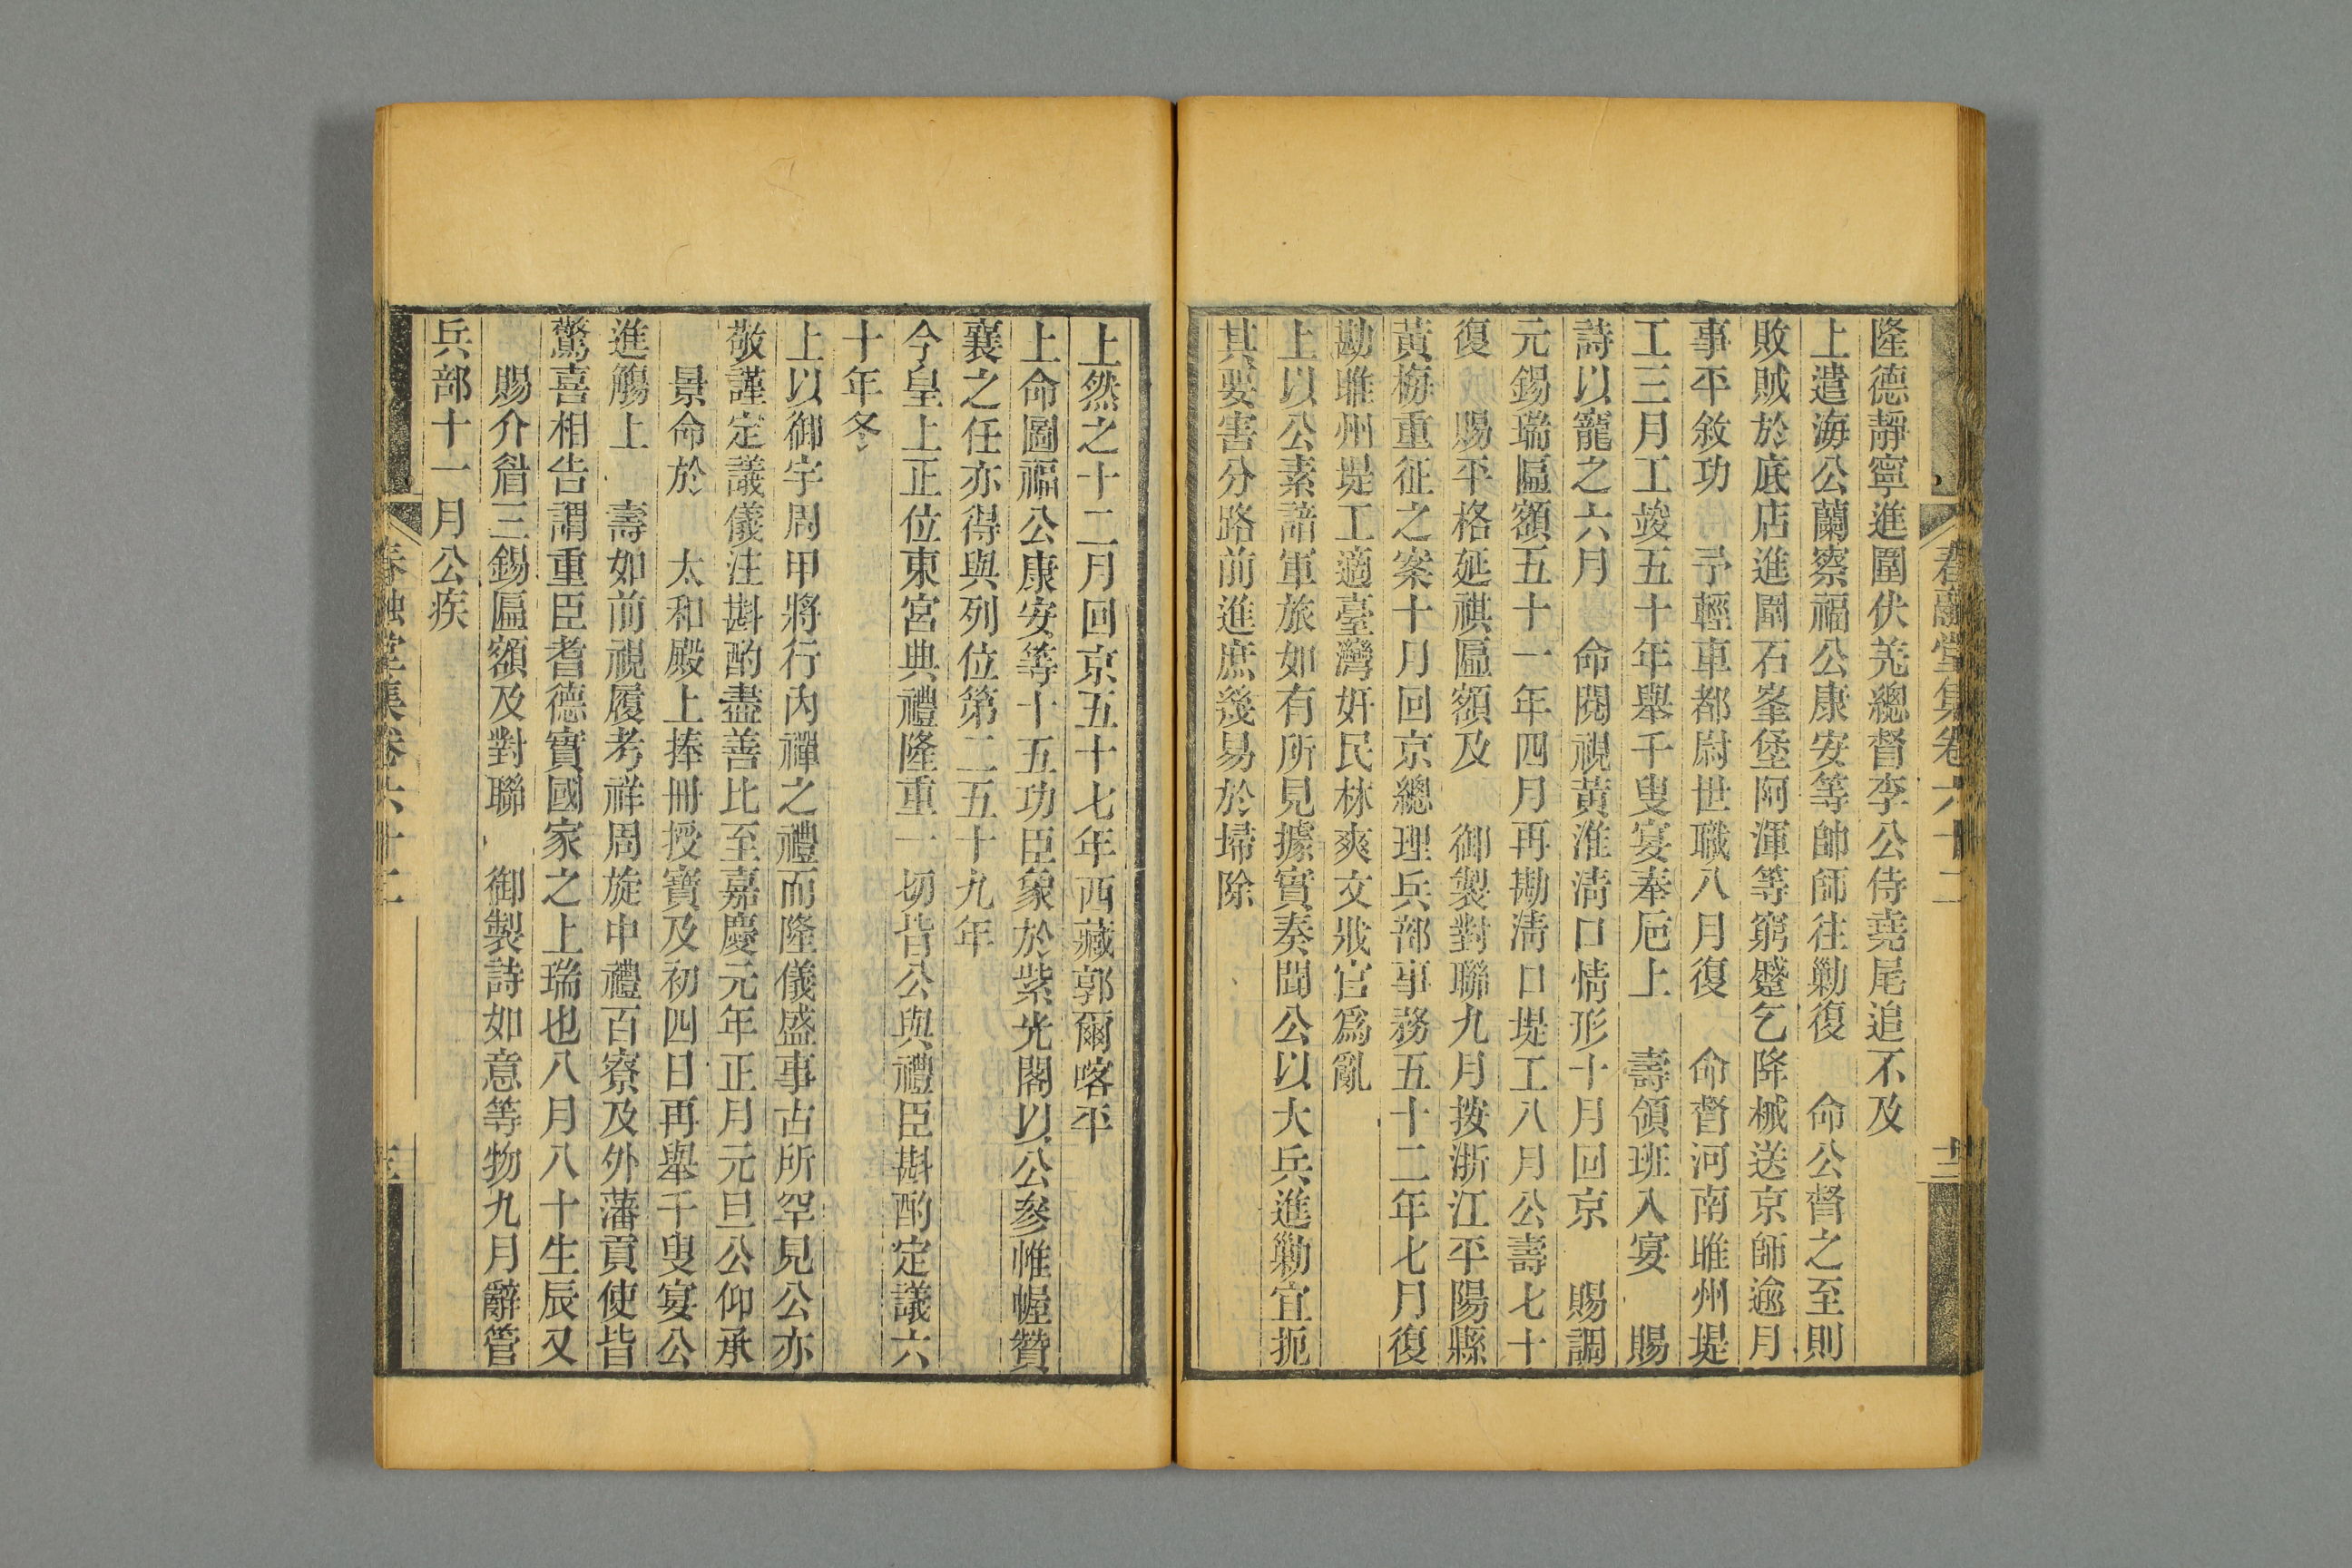 春融堂集卷六十二
十二
隆德靜寧進圍伏羌總督李公侍堯尾追不及
上遣海公蘭察福公康安等帥師往勦復　命公督之至則
敗賊於底店進圍石峯堡阿渾等窮蹙乞降械送京師逾月
事平敘功　予輕車都尉世職八月復　命督河南睢州堤
工三月工竣五十年舉千叟宴奉卮上　壽領班入宴　賜
詩以寵之六月　命閱視黃淮淸口情形十月回京　賜調
元錫瑞匾額五十一年四月再勘淸口堤工八月公壽七十
復　賜平格延祺匾額及　御製對聯九月按浙江平陽縣
黃梅重征之案十月回京總理兵部事務五十二年七月復
勘睢州堤工適臺灣奸民林爽文戕官爲亂
上以公素諳軍旅如有所見據實奏聞公以大兵進勦宜扼
其要害分路前進庶幾易於埽除
上然之十二月回京五十七年西藏郭爾喀平
上命圖福公康安等十五功臣象於紫光閣以公參帷幄贊
襄之任亦得與列位第二五十九年
今皇上正位東宮典禮隆重一切皆公與禮臣斟酌定議六
十年冬
上以御宇周甲將行內禪之禮而隆儀盛事古所罕見公亦
敬謹定議儀注斟酌盡善比至嘉慶元年正月元旦公仰承
景命於　太和殿上捧冊授寶及初四日再舉千叟宴公
進觴上　壽如前視履考祥周旋中禮百寮及外藩貢使皆
驚喜相告謂重臣耆德實國家之上瑞也八月八十生辰又
賜介眉三錫匾額及對聯　御製詩如意等物九月辭管
兵部十一月公疾
春融堂集卷六十二